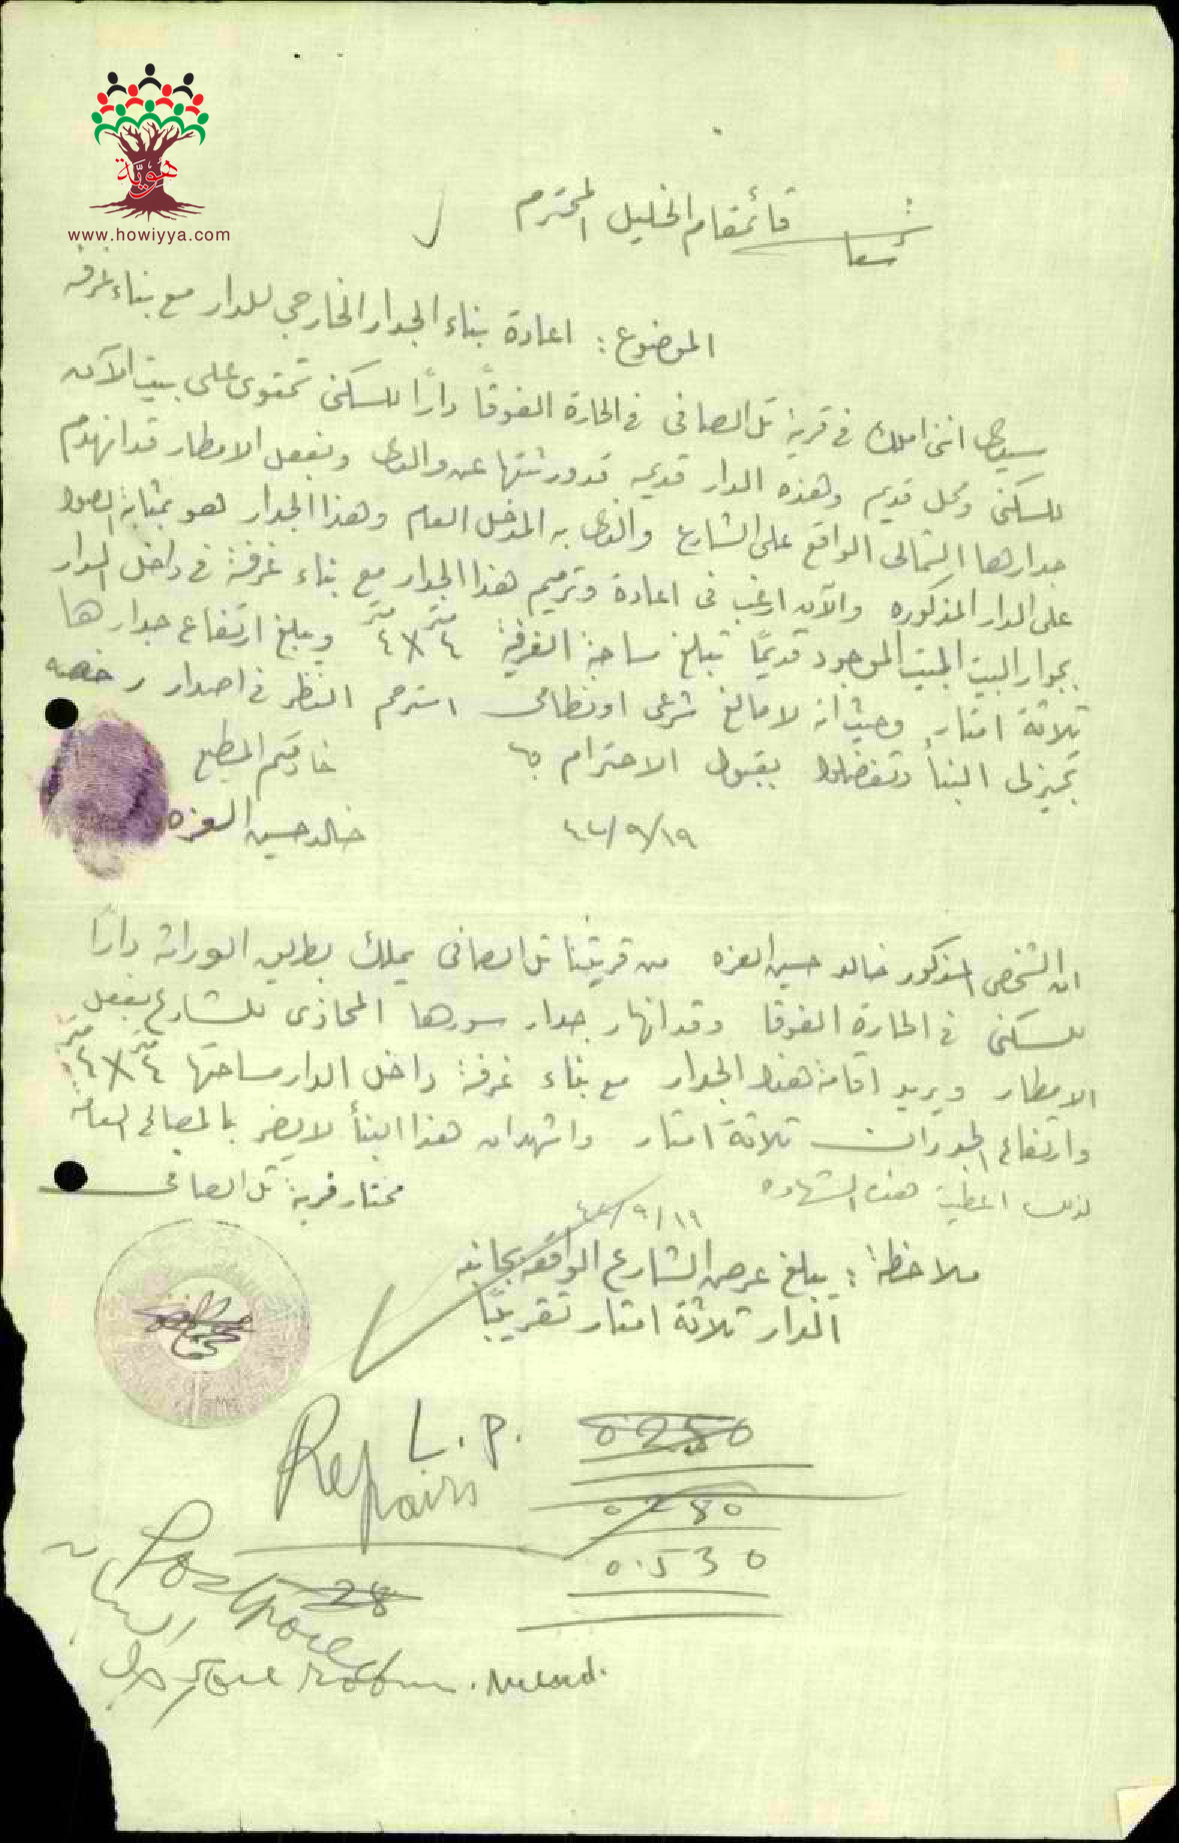 هوية
www.howiyya.com
سعادة قائمقام الخليل المحترم
الموضوع : اعادة بناء الجدار الخارجي للدار مع بناء غرفة
سيدي انني املك في قرية تل الصافي في الحارة الفوقا دارًا للسكن تحتوي على بيت الآن
للسكن ومحل قديم وهذه الدار قديمه قد ورثتها عن والدي وبفعل الامطار قد انهدم
جدارها الشمالي الواقع على الشارع والذي به المدخل العام وهذا الجدار هو بمثابة السور
على الدار المذكوره والآن ارغب في اعادة وترميم هذا الجدار مع بناء غرفة في داخل الدار
بجوار البيت الموجود قديمًا تبلغ مساحة الغرفة ٤ متر X ٤ متر ويبلغ ارتفاع جدارها
ثلاثة امتار وحيث انه لا مانع شرعي او نظامي استرحم النظر في اصدار رخصه
تجيز لي البنأ وتفضلوا بقبول الاحترام
خادمكم المطيع
٤٦/٩/١٩
خالد حسين العزه
ان الشخص المذكور خالد حسين العزه من قريتنا تل الصافي يملك بطريق الوراثه دارًا
للسكن في الحارة الفوقا وقد انهار جدار سورها المحاذي للشارع بفعل
الامطار ويريد اقامة هذا الجدار مع بناء غرفة داخل الدار مساحتها ٤ متر X ٤ متر
وارتفاع الجدران ثلاثة امتار واشهد ان هذا البنأ لا يضر بالمصالح العامة
لذلك اعطيت هذه الشهاده
مختار قرية تل الصافي
٤٦/٩/١٩
ملاحظة : يبلغ عرض الشارع الواقعه بجانبه
الدار ثلاثة امتار تقريبًا
L.P. 0250
Repairs
0280
0.530
28